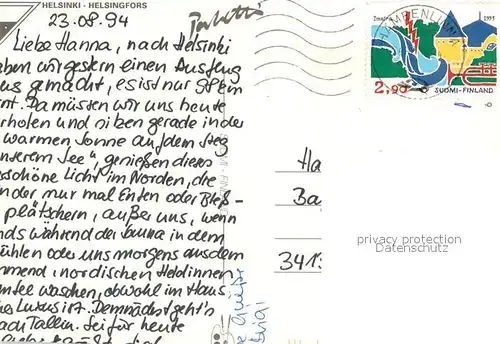 HELSINKI - HELSINGFORS
23.08.94
Liebe Hanna, nach Helsinki
aben wir gestern einen Ausflug
us gemacht, es ist nur 9 km
rnt. Da müssen wir uns heute
rholen und sitzen gerade in der
warmen Sonne auf dem Steg
nserem See", genießen dieses
schöne Licht im Norden, die
nder nur mal Enten oder Bleß-
plätschern, außer uns, wenn
nds während der Sauna in dem
ühlen oder uns morgens aus dem
mmend, nordischen Heldinnen
See waschen, obwohl im Haus
es Luxus ist. Demnächst geht's
ach Tallin. Sei für heute
1993
2,90
SUOMI-FINLAND
Ha
Ba
341
privacy protection
Datenschutz